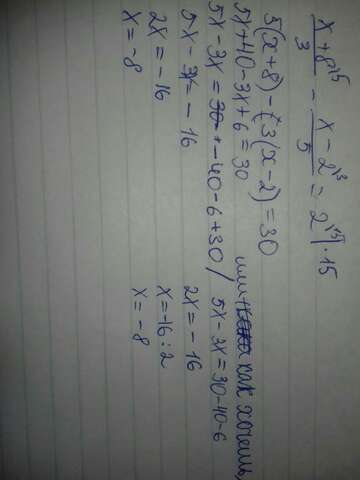 x+8\5/3 - x-2\3/5 = 2\15 | · 15
5(x+8) - 3(x-2) = 30
5x+40-3x+6=30
5x-3x = -40-6+30 / 5x-3x=30-40-6
5x-3x=-16
2x=-16
x=-8
или как хочешь,
2x=-16
x=-16:2
x=-8